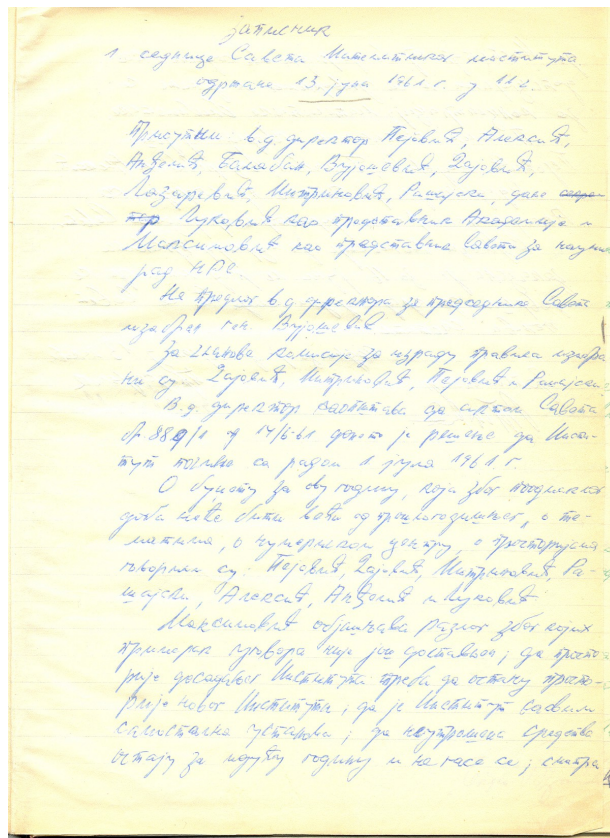 Записник
1 седнице Савета Математичког института
одржане 13. јуна 1961. г. у 11 ч.
Присутни: в.д. директор Пејовић, Алексић,
Анђелић, Балабан, Вујошевић, Зајовић,
Лазаревић, Митриновић, Рашајски, даље
Луковић као представник Академије и
Максимовић као представник Савета за научни
рад НРС
На предлог в.д. директора за председника Савета
изабран ген. Вујошевић
За чланове комисије за израду правила изабра
ни су Зајовић, Митриновић, Пејовић и Рашајски.
В.д. директор саопштава да актом Савета
бр. 889/1 од 17/6-61 донето је решење да Инсти-
тут почиње са радом 1 јула 1961. г.
О буџету за ову годину, који због
доба неће бити већи од прошлогодишњег, о те-
матима, о нумеричком центру, о просторијама
говорили су: Пејовић, Зајовић, Митриновић, Ра-
шајски, Алексић, Анђелић и Луковић
Максимовић објашњава разлог због којих
примерак уговора није још достављен; да просто
рије досадашњег Института треба да остану просто-
рије новог Института; да је Институт сасвим
самостална установа; да неутрошена средства
остају за идућу годину и на гласа се; сматра